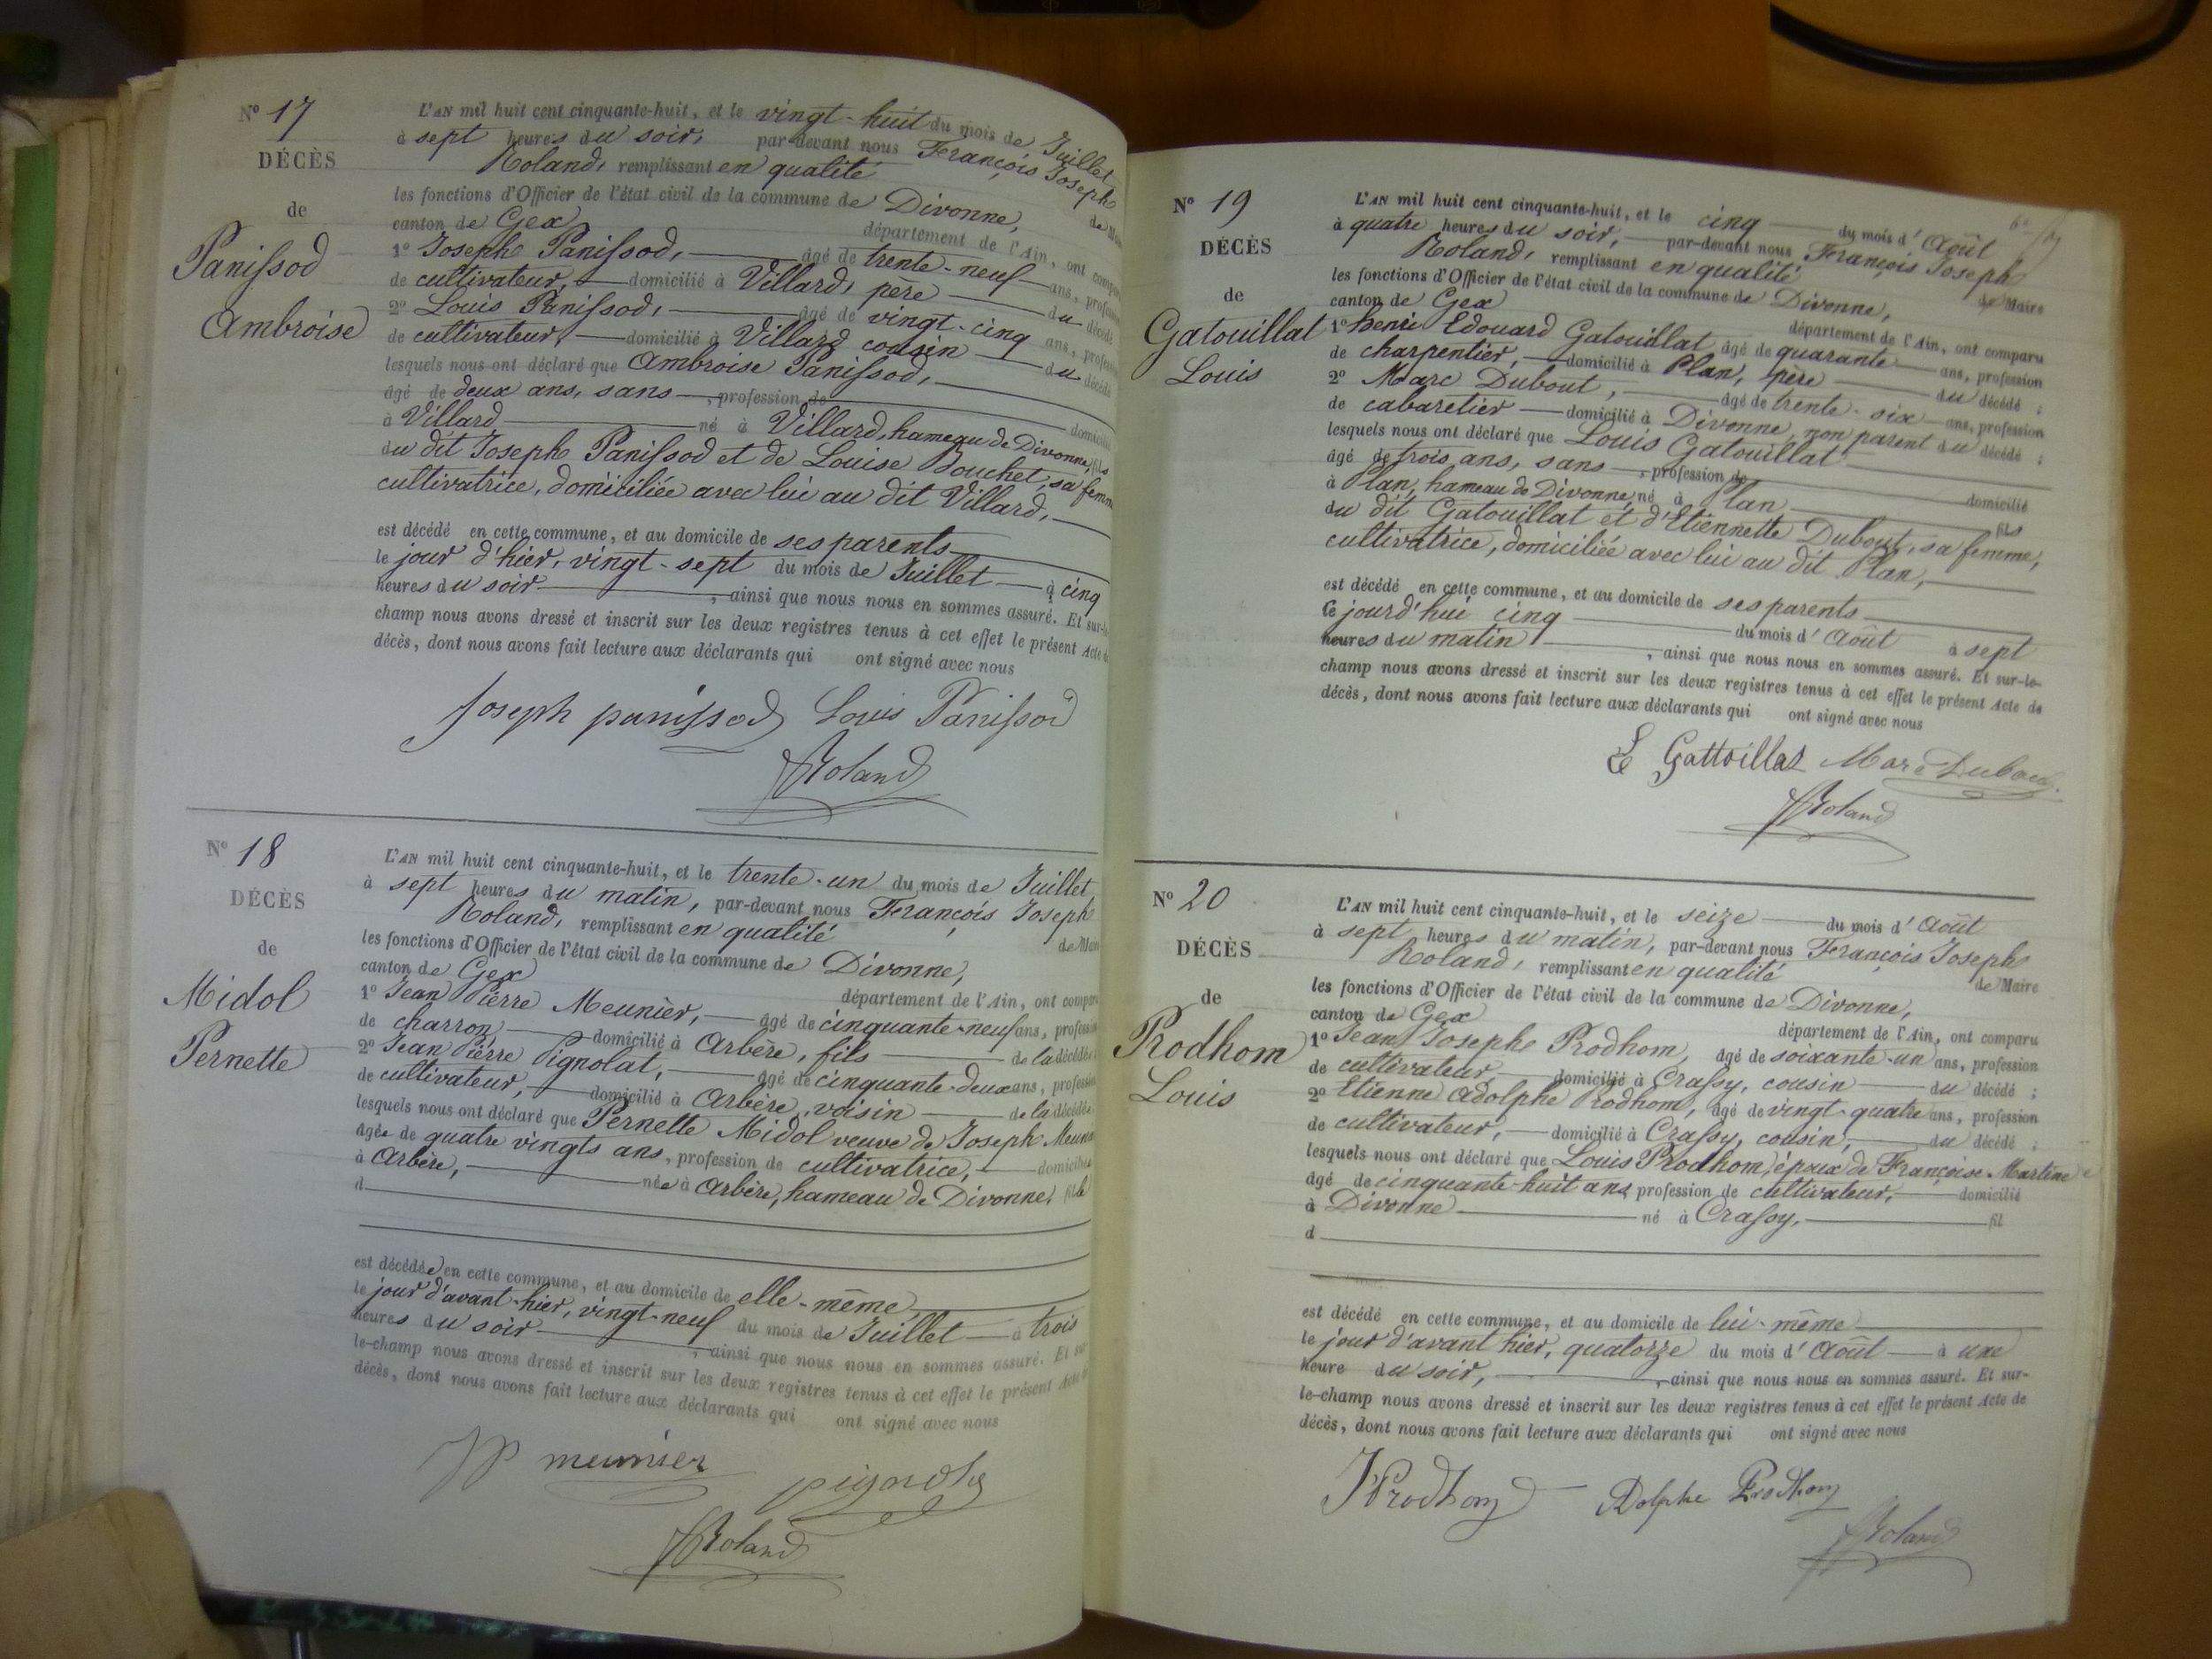 N° 17
DÉCÈS
de
Panissod
Ambroise
L'AN mil huit cent cinquante-huit, et le vingt-huit du mois de Juillet
à sept heures du soir, par-devant nous François Joseph
Roland, remplissant en qualité de
les fonctions d'Officier de l'état civil de la commune de Divonne,
canton de Gex département de l'Ain, ont
1° Joseph Panissod, âgé de trente-neuf ans,
de cultivateur, domicilié à Villard, père du décédé
2° Louis Panissod, âgé de vingt-cinq ans,
de cultivateur, domicilié à Villard cousin du décédé
lesquels nous ont déclaré que Ambroise Panissod,
âgé de deux ans, sans, profession de
à Villard né à Villard, hameau de Divonne, fils
du dit Joseph Panissod et de Louise Bouchet, sa femme
cultivatrice, domiciliée avec lui au dit Villard,
est décédé en cette commune, et au domicile de ses parents
le jour d'hier, vingt-sept du mois de Juillet à cinq
heures du soir, ainsi que nous nous en sommes assuré. Et sur-le-
champ nous avons dressé et inscrit sur les deux registres tenus à cet effet le présent Acte de
décès, dont nous avons fait lecture aux déclarants qui ont signé avec nous
Joseph panissod Louis Panissod
Roland
N° 18
DÉCÈS
de
Midol
Pernette
L'AN mil huit cent cinquante-huit, et le trente-un du mois de Juillet
à sept heures du matin, par-devant nous François Joseph
Roland, remplissant en qualité de
les fonctions d'Officier de l'état civil de la commune de Divonne,
canton de Gex département de l'Ain, ont
1° Jean Pierre Meunier, âgé de cinquante-neuf ans,
de charron, domicilié à Arbère, fils de la décédée
2° Jean Pierre Pignolat, âgé de cinquante-deux ans,
de cultivateur, domicilié à Arbère, voisin de la décédée
lesquels nous ont déclaré que Pernette Midol veuve de Joseph
âgée de quatre vingts ans, profession de cultivatrice,
à Arbère, née à Arbère, hameau de Divonne, fille
d
est décédée en cette commune, et au domicile de elle-même
le jour d'avant-hier, vingt-neuf du mois de Juillet à trois
heures du soir, ainsi que nous nous en sommes assuré. Et sur-
le-champ nous avons dressé et inscrit sur les deux registres tenus à cet effet le présent Acte de
décès, dont nous avons fait lecture aux déclarants qui ont signé avec nous
JP meunier pignolat
Roland
N° 19
DÉCÈS
de
Gatouillat
Louis
L'AN mil huit cent cinquante-huit, et le cinq du mois d'Août
à quatre heures du soir, par-devant nous François Joseph
Roland, remplissant en qualité de Maire
les fonctions d'Officier de l'état civil de la commune de Divonne,
canton de Gex département de l'Ain, ont comparu
1° henri Edouard Gatouillat âgé de quarante ans, profession
de charpentier, domicilié à Plan, père du décédé ;
2° Marc Dubout, âgé de trente-six ans, profession
de cabaretier domicilié à Divonne, non parent du décédé ;
lesquels nous ont déclaré que Louis Gatouillat
âgé de trois ans, sans, profession de domicilié
à Plan, hameau de Divonne, né à Plan fils
du dit Gatouillat et d'Etiennette Dubout, sa femme,
cultivatrice, domiciliée avec lui au dit Plan,
est décédé en cette commune, et au domicile de ses parents
ce jourd'hui cinq du mois d'Août à sept
heures du matin, ainsi que nous nous en sommes assuré. Et sur-le-
champ nous avons dressé et inscrit sur les deux registres tenus à cet effet le présent Acte de
décès, dont nous avons fait lecture aux déclarants qui ont signé avec nous
E Gattoillat Marc Dubout
Roland
N° 20
DÉCÈS
de
Prodhom
Louis
L'AN mil huit cent cinquante-huit, et le seize du mois d'Août
à sept heures du matin, par-devant nous François Joseph
Roland, remplissant en qualité de Maire
les fonctions d'Officier de l'état civil de la commune de Divonne,
canton de Gex département de l'Ain, ont comparu
1° Jean Joseph Prodhom, âgé de soixante-un ans, profession
de cultivateur domicilié à Crassy, cousin du décédé ;
2° Etienne Adolphe Prodhom, âgé de vingt-quatre ans, profession
de cultivateur, domicilié à Crassy, cousin, du décédé ;
lesquels nous ont déclaré que Louis Prodhom, époux de Françoise Martine
âgé de cinquante-huit ans, profession de cultivateur, domicilié
à Divonne né à Crassy, fil
d
est décédé en cette commune, et au domicile de lui-même
le jour d'avant hier, quatorze du mois d'Août à une
heure du soir, ainsi que nous nous en sommes assuré. Et sur-
le-champ nous avons dressé et inscrit sur les deux registres tenus à cet effet le présent Acte de
décès, dont nous avons fait lecture aux déclarants qui ont signé avec nous
JProdhom Adolphe Prodhom
Roland